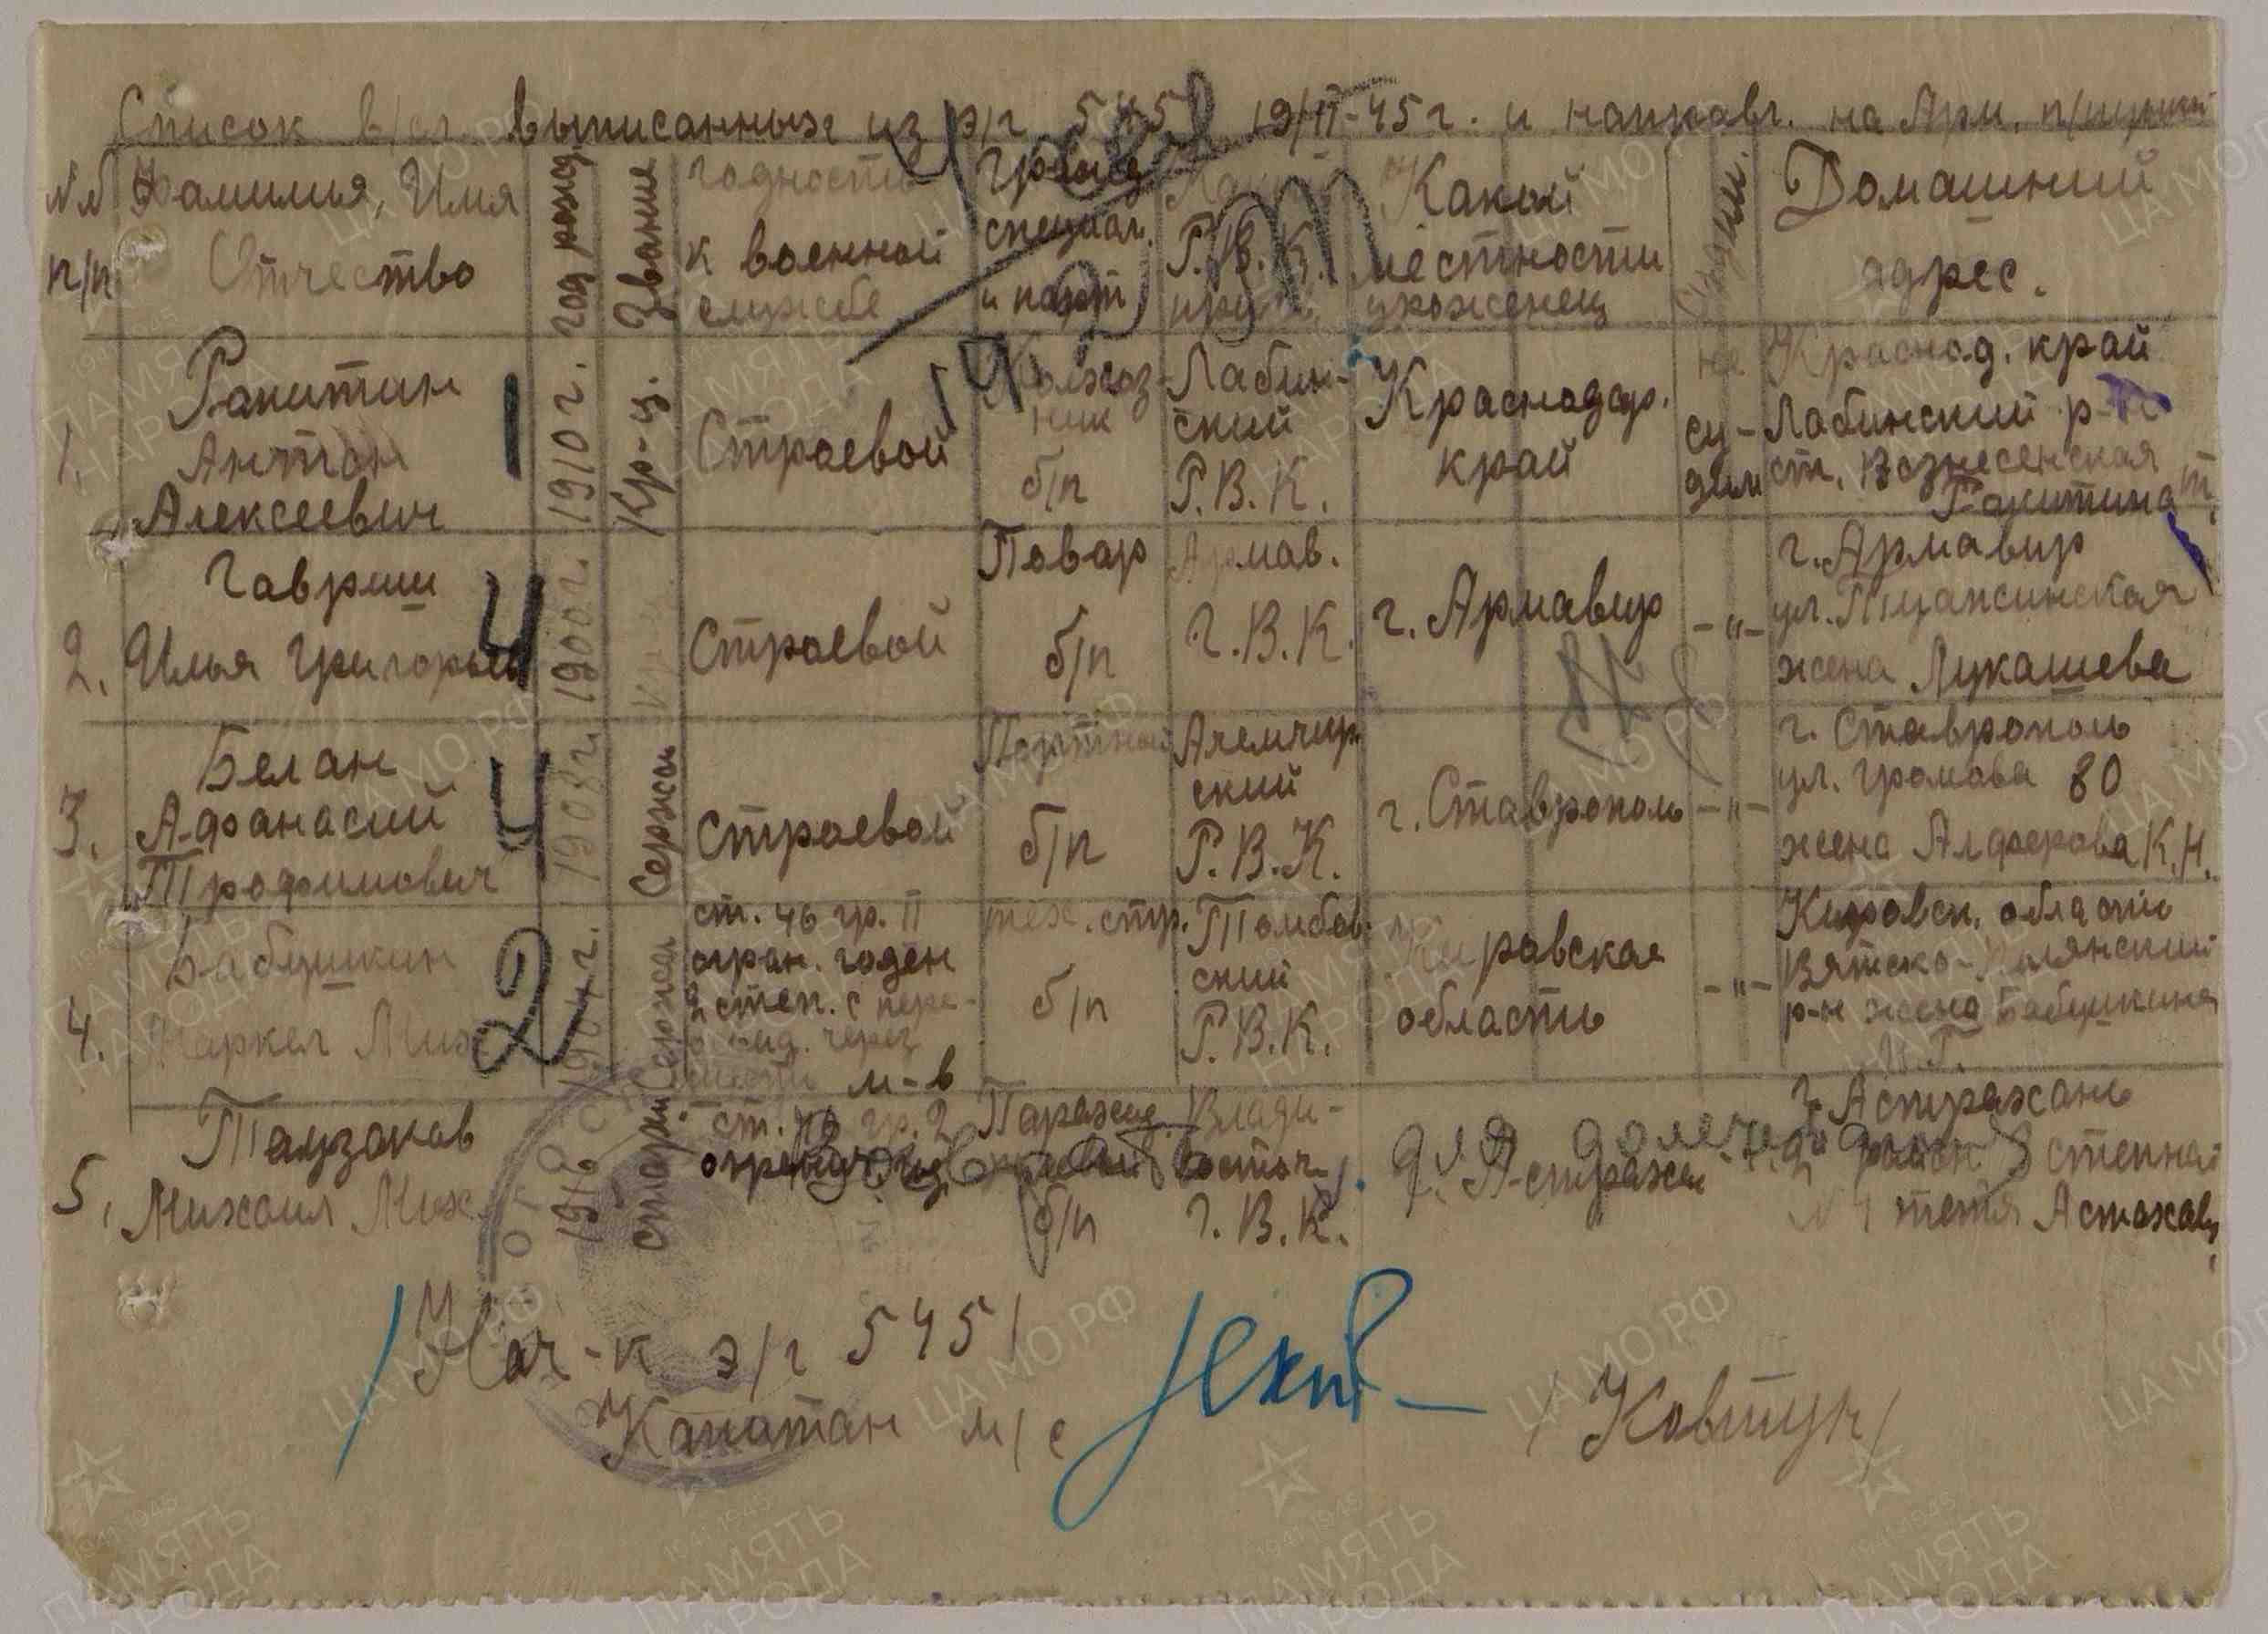 Список в/сл. выписанных из э/г 5451 19/II-45г. и направл. на Арм. п/пункт
№№ п/п
Фамилия, Имя
Отчество
год рожд.
Звание
годность
к военной
службе
Гражд
специал.
и парт
Каким
Р.В.К.
призв.
Какой
местности
уроженец
Судим.
Домашний
адрес.
1.
Ракитин
Антон
Алексеевич
1
1910 г.
Кр-ц.
Строевой
Колхоз-
ник
б/п
Лабин-
ский
Р.В.К.
Краснодар.
край
не
су-
дим
Краснод. край
Лабинский р-н
ст. Вознесенская
Ракитина
2.
Гавриш
Илья Григорьев
4
1900 г.
Строевой
Повар
б/п
Армав.
Г.В.К.
г. Армавир
-"-
г. Армавир
ул. Туапсинская
жена Лукашева
3.
Белан
Афанасий
Трофимович
4
1908 г.
Сержан
Строевой
Портной
б/п
Ачемчир
ский
Р.В.К.
г. Ставрополь
-"-
г. Ставрополь
ул. Громова 80
жена Алферова К.Н.
4.
Бабушкин
Маркел Мих
2
1904 г.
Сержан
ст. 46 гр. II
огран. годен
2 степ. с пере-
освид. через
м-в
тех. стр.
б/п
Тамбов
ский
Р.В.К.
Кировская
область
-"-
Кировск. области
Вятско-Полянский
р-н жена Бабушкина
5.
Таузаков
Михаил Мих
1916
старш
ст. 46 гр. 2
Парахме
б/п
Влади-
восточ
Г.В.К.
г. Астрахан
г. Астрахань
Степная
тетя Астахова
Нач-к э/г 5451
Капитан м/с
/Ковтун/